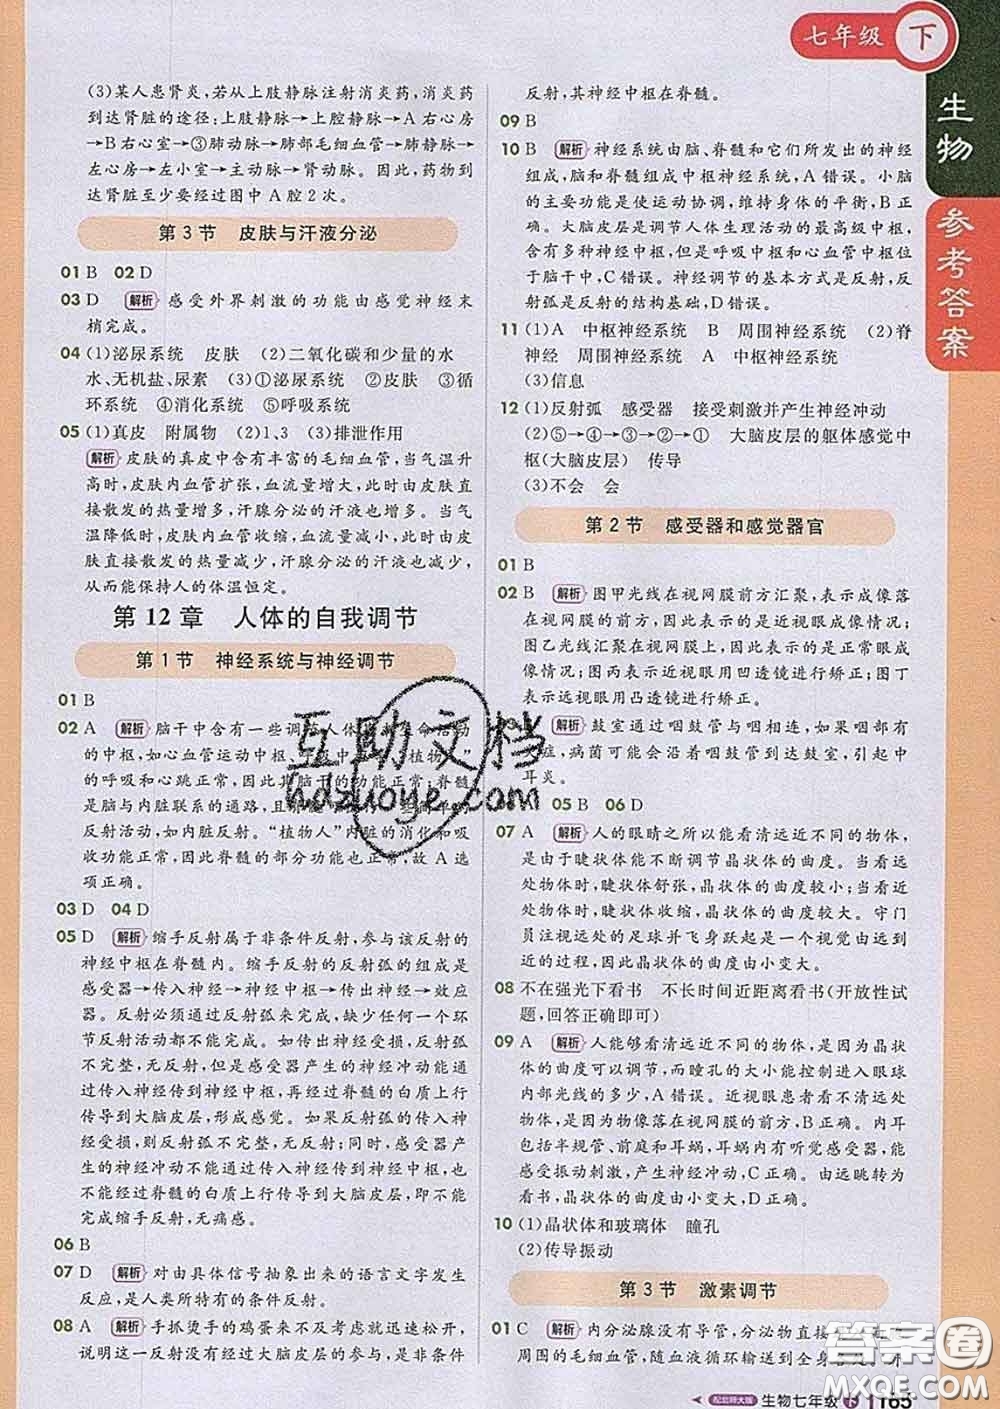 七年级 下
生物
参考答案
(3)某人患肾炎，若从上肢静脉注射消炎药，消炎药
到达肾脏的途径：上肢静脉→上腔静脉→A右心房
→B右心室→③肺动脉→肺部毛细血管→肺静脉→
左心房→左心室→主动脉→肾动脉。因此，药物到
达肾脏至少要经过图中A腔2次。
第3节 皮肤与汗液分泌
01 B 02 D
03 D 解析 感受外界刺激的功能由感觉神经末
梢完成。
04 (1)泌尿系统 皮肤 (2)二氧化碳和少量的水
水、无机盐、尿素 (3)①泌尿系统 ②皮肤 ③循
环系统 ④消化系统 ⑤呼吸系统
05 (1)真皮 附属物 (2)1、3 (3)排泄作用
解析 皮肤的真皮中含有丰富的毛细血管，当气温升
高时，皮肤内血管扩张，血流量增多，由皮肤直
接散发的热量增多，汗腺分泌的汗液也增多。当气
温降低时，皮肤血管收缩，血流量减少，由皮肤
直接散发的热量减少，汗腺分泌的汗液也减少，
从而能保持人的体温恒定。
第12章 人体的自我调节
第1节 神经系统与神经调节
01 B
02 A 解析 脑干中含有一些调节人体基本生命活动
的中枢，如心血管运动中枢、呼吸中枢等。“植物人”
的呼吸和心跳正常，因此其脑干的功能正常。脊髓
是脑与内脏联系的通路，且能完成一些简单的
反射活动，如内脏反射。“植物人”内脏的消化和吸
收功能正常，因此脊髓的部分功能也正常，故A选
项正确。
03 D 04 D
05 D 解析 缩手反射属于非条件反射，参与该反射的
神经中枢在脊髓内。缩手反射的反射弧的组成是
感受器→传入神经→神经中枢→传出神经→效应
器。反射必须通过反射弧来完成，缺少任何一个环
节反射活动都不能完成。如传出神经受损，反射弧
不完整，无反射，但是感受器产生的神经冲动能通
过传入神经传到神经中枢，再经过脊髓的白质上行
传导到大脑皮层，形成感觉。如果反射弧的传入神
经受损，则反射弧不完整，无反射；同时，感受器产
生的神经冲动不能通过传入神经传到神经中枢，也不
能经过脊髓的白质上行传导到大脑皮层，所以不能
完成缩手反射，无痛感。
06 B
07 D 解析 对由具体信号抽象出来的语言文字发生
反应，是人类所特有的条件反射。
08 A 解析 手抓烫手的鸡蛋来不及考虑就迅速松开，
说明这一反射没有经过大脑皮层的参与，是非条件
反射，其神经中枢在脊髓。
09 B
10 B 解析 神经系统由脑、脊髓和它们所发出的神经
组成，脑和脊髓组成中枢神经系统，A错误。小脑
的主要功能是使运动协调，维持身体的平衡，B正
确。大脑皮层是调节人体生理活动的最高级中枢，
含有多种神经中枢，但是呼吸中枢和心血管中枢位
于脑干中，C错误。神经调节的基本方式是反射，反
射弧是反射的结构基础，D错误。
11 (1)A 中枢神经系统 B 周围神经系统 (2)脊
神经 周围神经系统 A 中枢神经系统
(3)信息
12 (1)反射弧 感受器 接受刺激并产生神经冲动
(2)⑤→④→③→②→① 大脑皮层的躯体感觉中
枢(大脑皮层) 传导
(3)不会 会
第2节 感受器和感觉器官
01 B
02 B 解析 图甲光线在视网膜前方汇聚，表示成像落
在视网膜的前方，因此表示的是近视眼成像情况；
图乙光线汇聚在视网膜上，因此表示的是正常眼成
像情况；图丙表示近视眼用凹透镜进行矫正；图丁
表示远视眼用凸透镜进行矫正。
03 解析 鼓室通过咽鼓管与咽相连，如果咽部有
炎症，病菌可能会沿着咽鼓管到达鼓室，引起中
耳炎。
05 B 06 D
07 A 解析 人的眼睛之所以能看清远近不同的物体，
是由于睫状体能不断调节晶状体的曲度。当看远
处物体时，睫状体舒张，晶状体的曲度较小；看近
处物体时，睫状体收缩，晶状体的曲度较大。守门
员注视远处的足球并飞身跃起是一个视觉由远到
近的过程，因此晶状体的曲度由小变大。
08 不在强光下看书 不长时间近距离看书(开放性试
题，回答正确即可)
09 A 解析 人能够看清远近不同的物体，是因为晶状
体的曲度可以调节，而瞳孔的大小能控制进入眼球
内部光线的多少，A错误。近视眼患者看不清远处
物体，是因为物像落在视网膜的前方，B正确。内耳
包括半规管、前庭和耳蜗，耳蜗内有听觉感受器，能
感受振动刺激，产生神经冲动，C正确。由远眺转为
看书，因此，晶状体的曲度由小变大，D正确。
10 (1)晶状体和玻璃体 瞳孔
(2)传导振动
第3节 激素调节
01 C 解析 内分泌腺没有导管，分泌物直接
周围的毛细血管，随血液循环输送到全身
配北师大版 生物七年级 下 165
互助文档
hdzuoye.com
答案圈
MXQE.COM